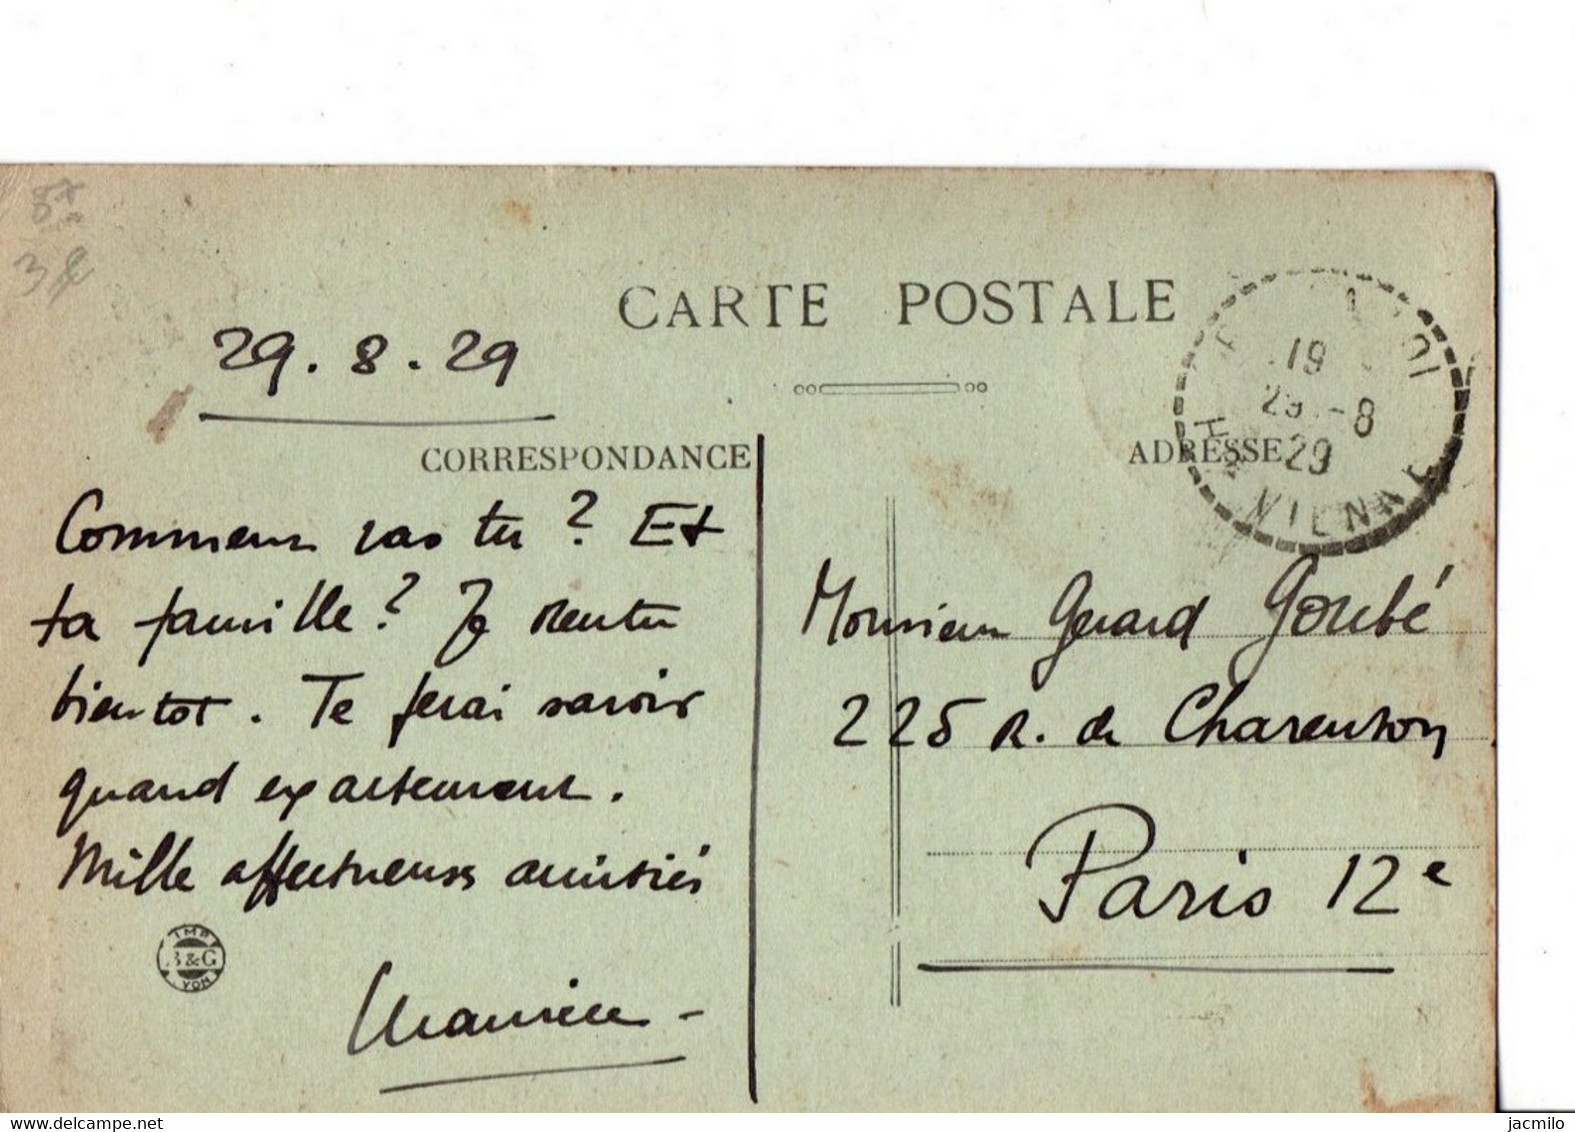 87
3€
CARTE POSTALE
29.8.29
CORRESPONDANCE
ADRESSE
19
29-8
29
HTE VIENNE
Comment vas tu ? Et
ta famille ? Je rentre
bientot. Te ferai savoir
quand exactement.
Mille affectueuses amitiés
Maurice -
IMP
B & G
LYON
Monsieur Gerard Goubé
225 R. de Charenton
Paris 12e
delcampe.net
jacmilo